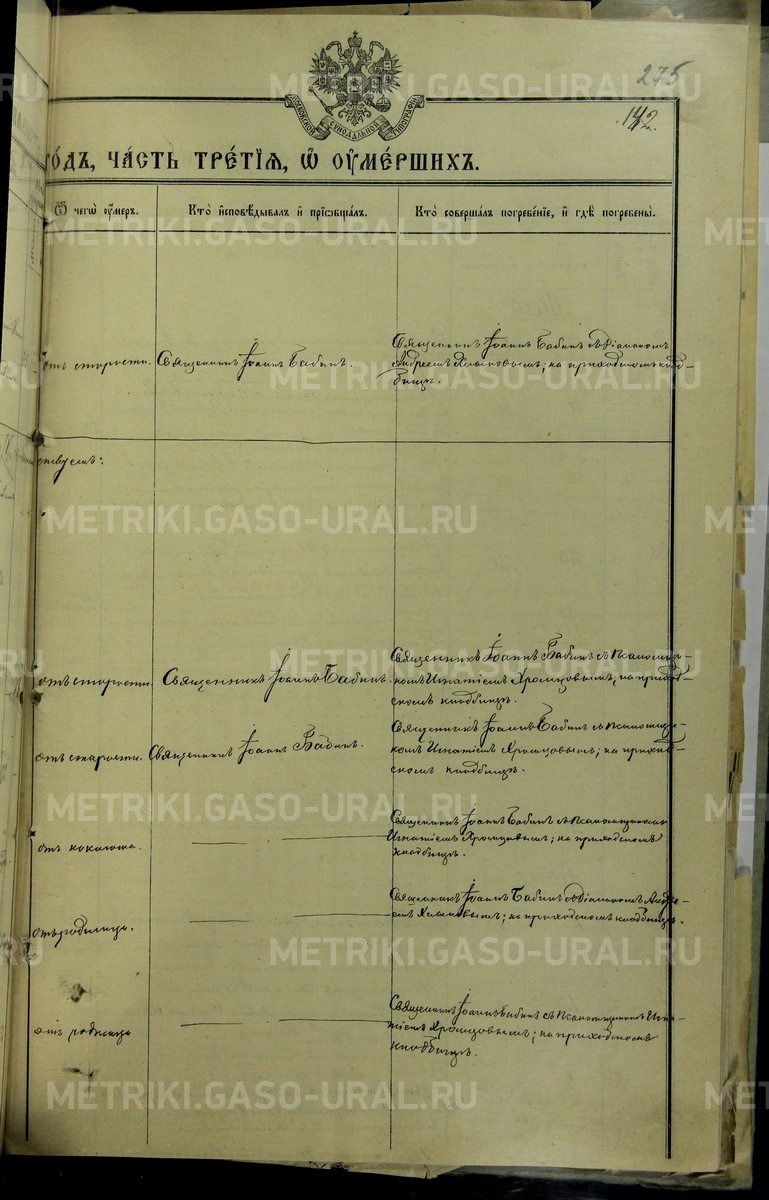 275
142.
МОСКОВСКОЙ СѴНОДАЛЬНОЙ ТИПОГРАФІИ
го́дъ, ча́сть тре́тїѧ, ѡ҆ ᲂу҆ме́ршихъ.
Ѿ чегѡ̀ ᲂу҆́меръ.
Кто̀ и҆сповѣ́дывалъ и҆ прїѡбща́лъ.
Кто̀ соверша́лъ погребе́нїе, и҆ гдѣ̀ погребены̀.
отъ старости.
Священникъ Іоаннъ Бабинъ.
Священникъ Іоаннъ Бабинъ съ Діакономъ
Андреемъ Хлыновымъ; на приходскомъ клад-
бищѣ.
отъ старости.
Священникъ Іоаннъ Бабинъ.
Священникъ Іоаннъ Бабинъ съ Псаломщи-
комъ Игнатіемъ Хромцовымъ; на приход-
скомъ кладбищѣ.
отъ старости.
Священникъ Іоаннъ Бабинъ.
Священникъ Іоаннъ Бабинъ съ Псаломщи-
комъ Игнатіемъ Хромцовымъ; на приход-
скомъ кладбищѣ.
отъ коклюша.
Священникъ Іоаннъ Бабинъ съ Псаломщикомъ
Игнатіемъ Хромцовымъ; на приходскомъ
кладбищѣ.
отъ родимца.
Священникъ Іоаннъ Бабинъ съ Діакономъ Андре-
емъ Хлыновымъ; на приходскомъ кладбищѣ.
отъ родимца
Священникъ Іоаннъ Бабинъ съ Псаломщикомъ Игна-
тіемъ Хромцовымъ; на приходскомъ
кладбищѣ.
METRIKI.GASO-URAL.RU